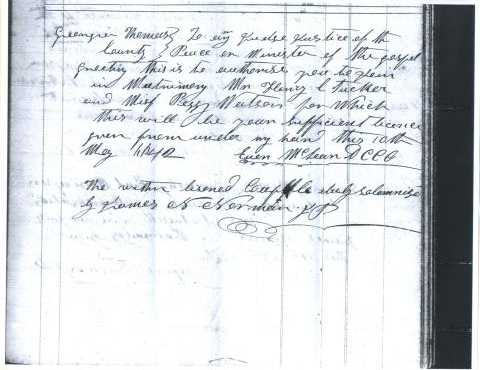 To any Judge Justice of th
County & Peace or Minister of the gospel
greeting this is to authorise you to Join
in Matrimony Mr Henry C Tucker
and Miss Peggy Watson for which
this will be your Sufficient licence
given from under my hand this 10th
May 1842 Even McLean DCCO
The within licened Couple duly solemnise
by James N Norman JP